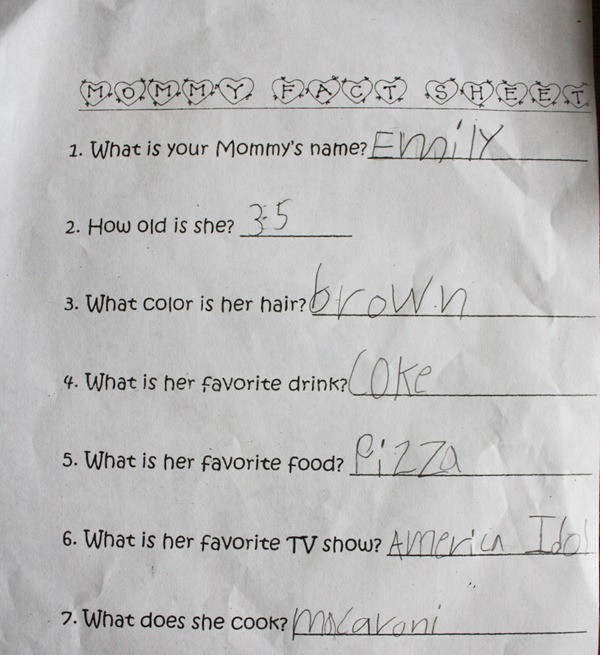 MOMMY FACT SHEET
1. What is your Mommy's name? Emily
2. How old is she? 35
3. What color is her hair? brown
4. What is her favorite drink? Coke
5. What is her favorite food? Pizza
6. What is her favorite TV show? America Idol
7. What does she cook? macaroni